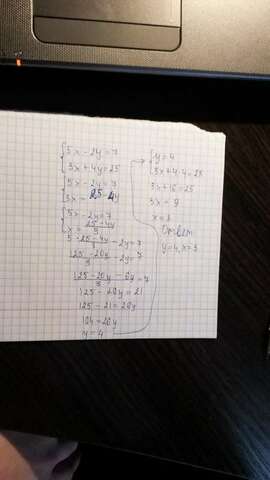 5x - 2y = 7
3x + 4y = 25
5x - 2y = 7
3x = 25 - 4y
5x - 2y = 7
x = (25 - 4y)/3
5 · (25 - 4y)/3 - 2y = 7
(125 - 20y)/3 - 2y = 7
(125 - 20y - 6y)/3 = 7
125 - 26y = 21
125 - 21 = 26y
104 = 26y
y = 4
y = 4
3x + 4 · 4 = 25
3x + 16 = 25
3x = 9
x = 3
Ответ
y = 4, x = 3